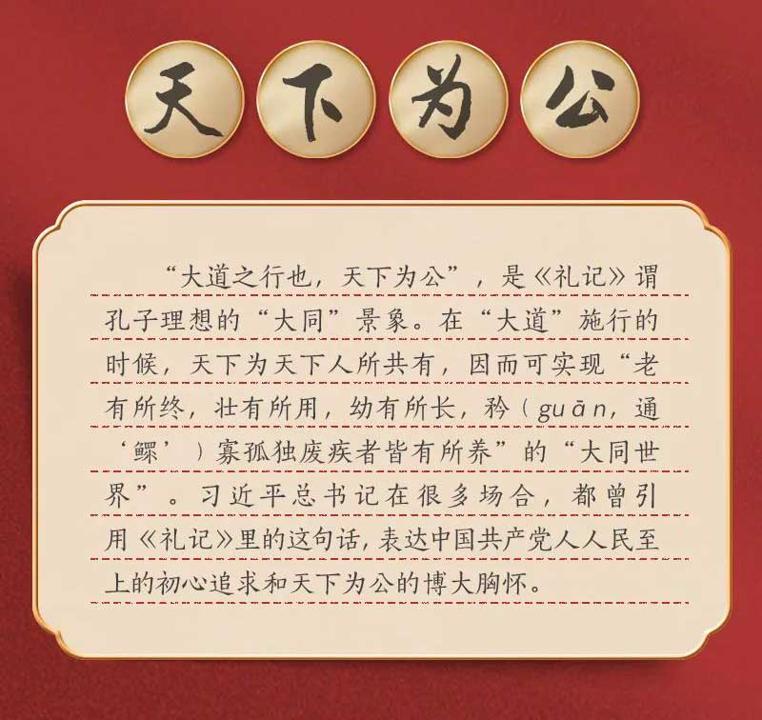 天下为公
“大道之行也，天下为公”，是《礼记》谓
孔子理想的“大同”景象。在“大道”施行的
时候，天下为天下人所共有，因而可实现“老
有所终，壮有所用，幼有所长，矜（guān，通
‘鳏’）寡孤独废疾者皆有所养”的“大同世
界”。习近平总书记在很多场合，都曾引
用《礼记》里的这句话，表达中国共产党人人民至
上的初心追求和天下为公的博大胸怀。